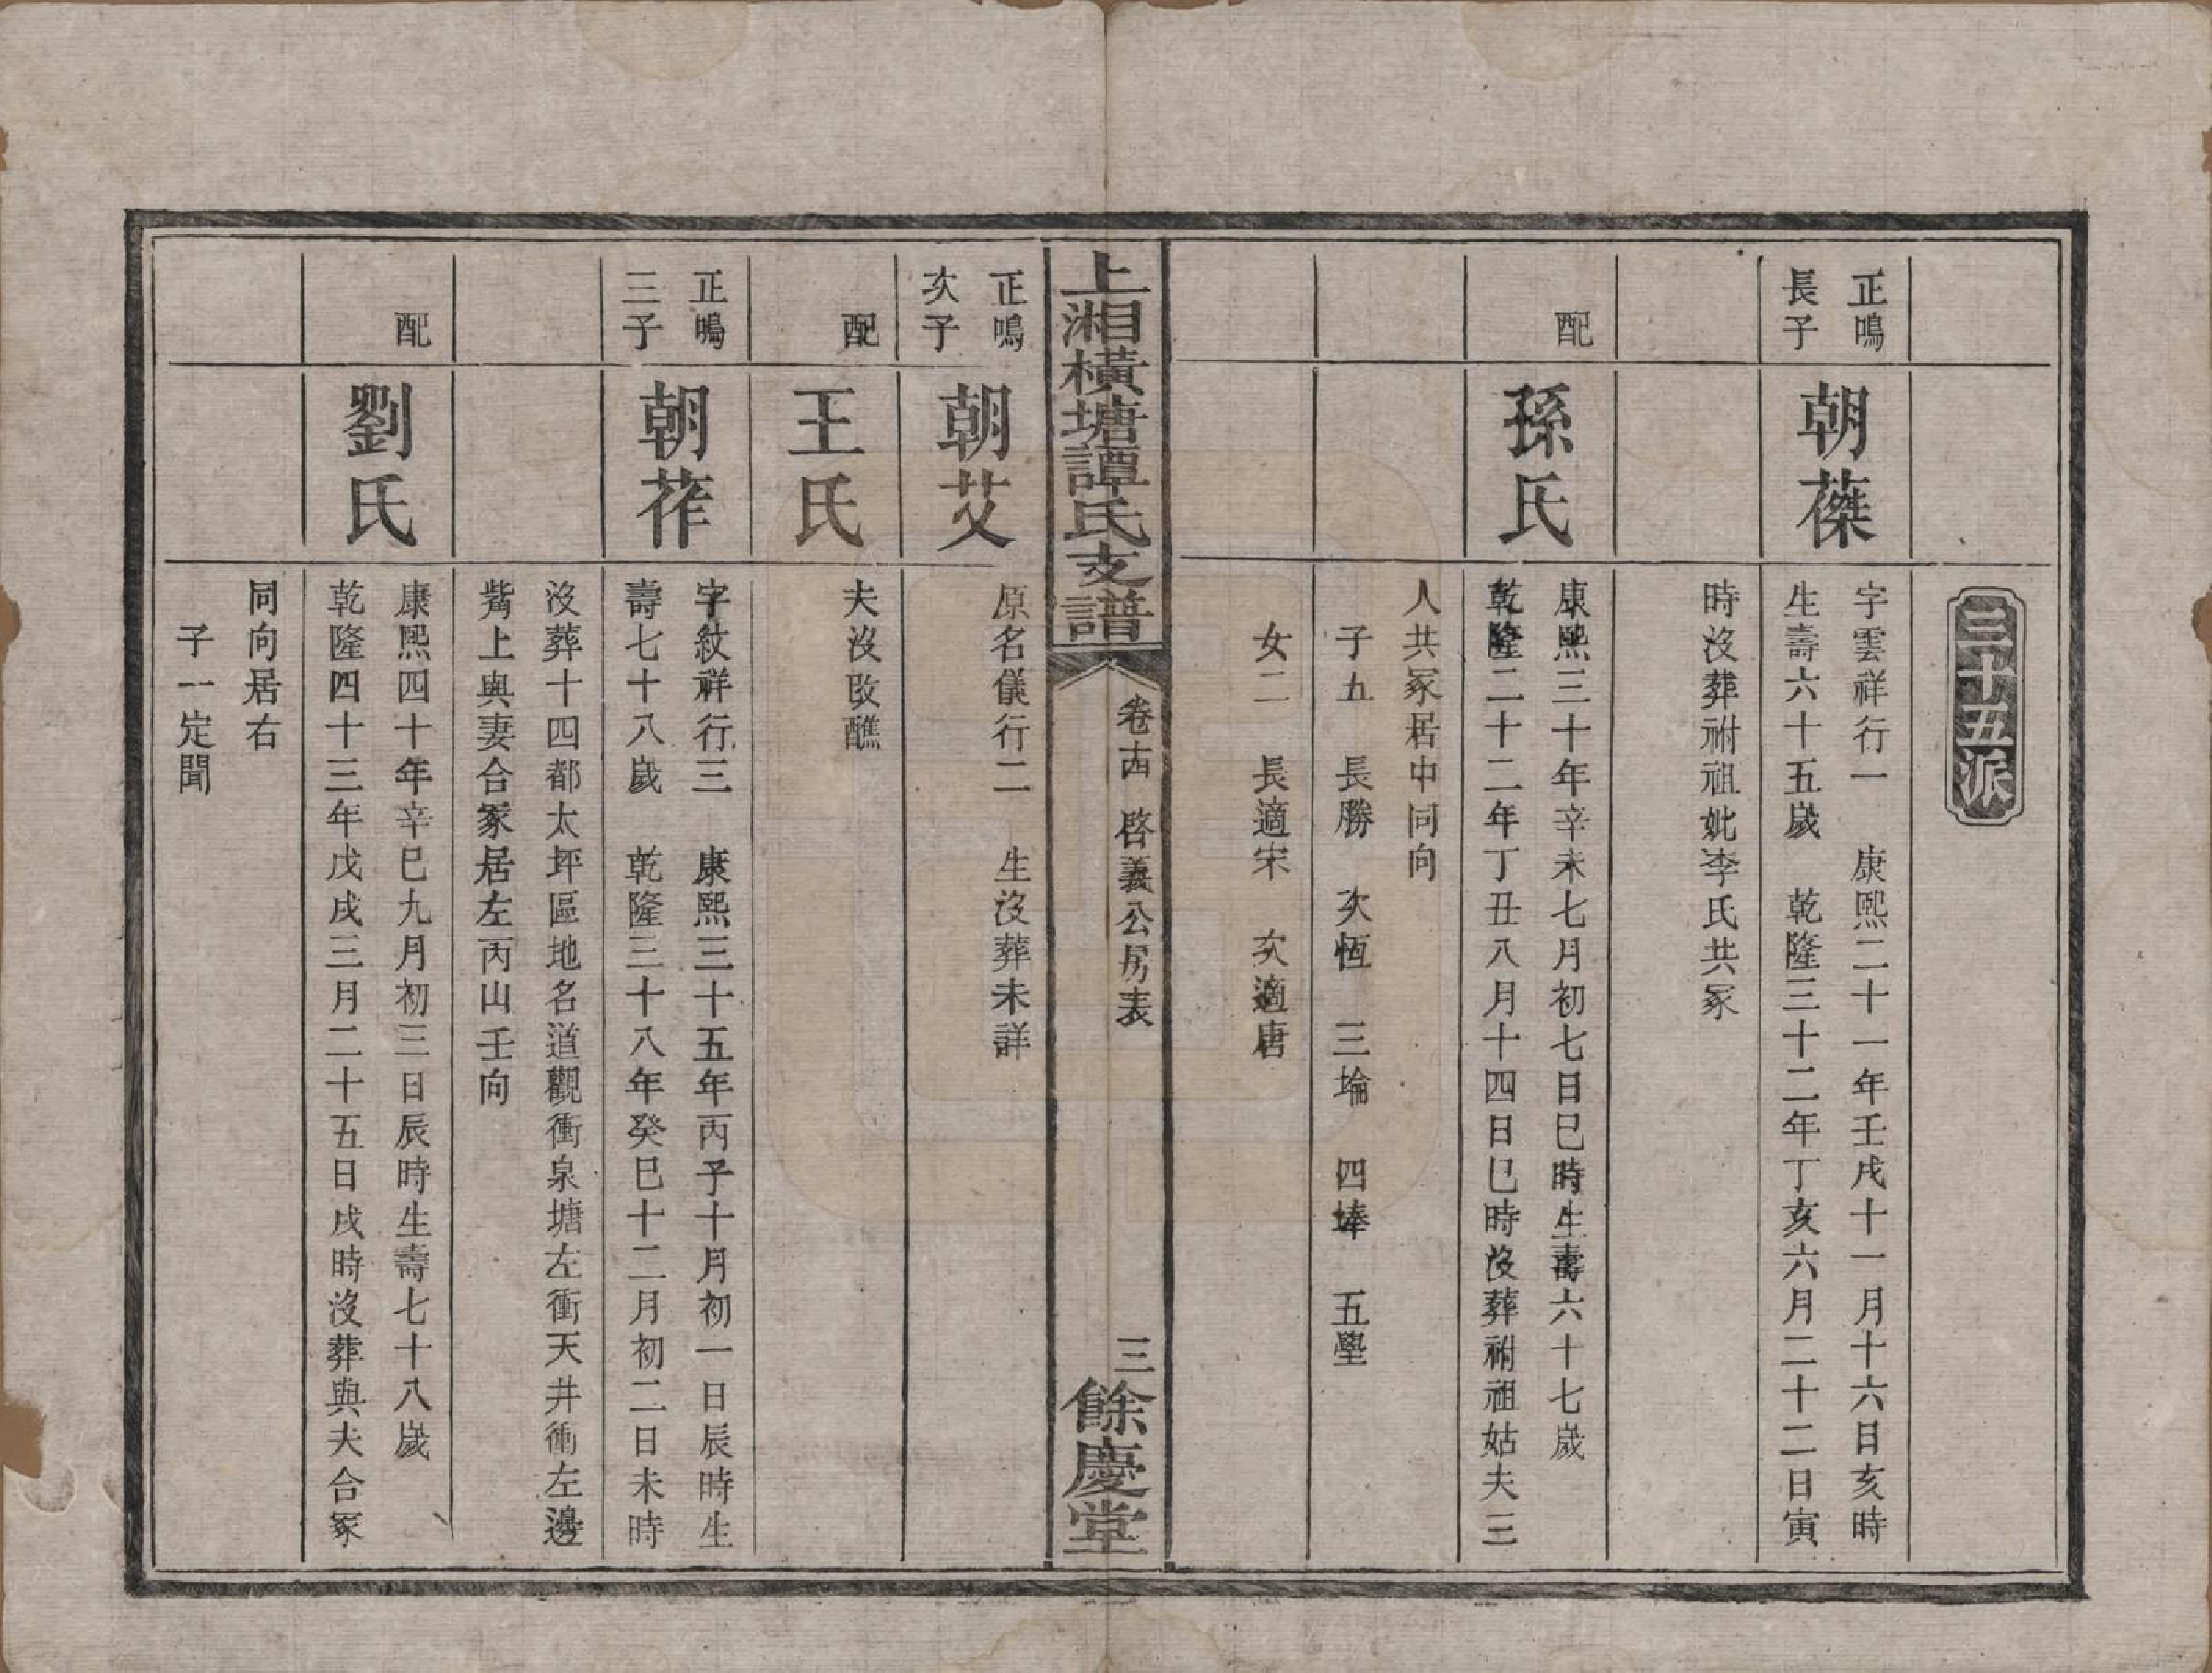 三十五派
正鳴
長子
朝蕣
字雲祥行一　康熙二十一年壬戌十一月十六日亥時
生壽六十五歲　乾隆三十二年丁亥六月二十二日寅
時沒葬祔祖妣李氏共冢
配
孫氏
康熙三十年辛未七月初七日巳時生壽六十七歲
乾隆二十二年丁丑八月十四日巳時沒葬祔祖姑夫三
人共冢居中同向
子五　長勝　次恆　三埨　四埲　五壆
女二　長適宋　次適唐
上湘橫塘譚氏支譜
卷十四　啓義公房表
三
餘慶堂
正鳴
次子
朝艾
原名儀行二　生沒葬未詳
配
王氏
夫沒改醮
正鳴
三子
朝莋
字紋祥行三　康熙三十五年丙子十月初一日辰時生
壽七十八歲　乾隆三十八年癸巳十二月初二日未時
沒葬十四都太坪區地名道觀衝泉塘左衝天井衝左邊
觜上與妻合冢居左丙山壬向
配
劉氏
康熙四十年辛巳九月初三日辰時生壽七十八歲
乾隆四十三年戊戌三月二十五日戌時沒葬與夫合冢
同向居右
子一定聞